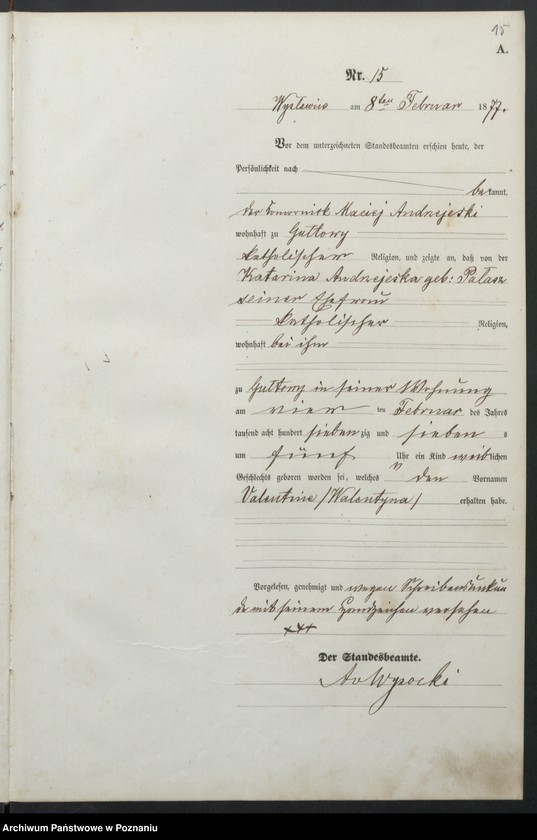 15
A.
Nr. 15
am 8ten Februar 1877.
Vor dem unterzeichneten Standesbeamten erschien heute, der
Persönlichkeit nach
bekannt,
der Komornik Maciej Andrzejeski
wohnhaft zu Guttowy
katholischer Religion, und zeigte an, daß von der
Katarina Andrzejeska geb: Palasz
seiner Ehefrau
katholischer Religion,
wohnhaft bei ihm
zu Guttowy in seiner Wohnung
am vier ten Februar des Jahres
tausend acht hundert siebenzig und sieben s
um fünf Uhr ein Kind weiblichen
Geschlechts geboren worden sei, welches den Vornamen
Valentine /Walentyna/ erhalten habe.
Vorgelesen, genehmigt und wegen Schreibensunkun
de mit seinem Handzeichen versehen
+++
Der Standesbeamte.
Wysocki
Archiwum Państwowe w Poznaniu